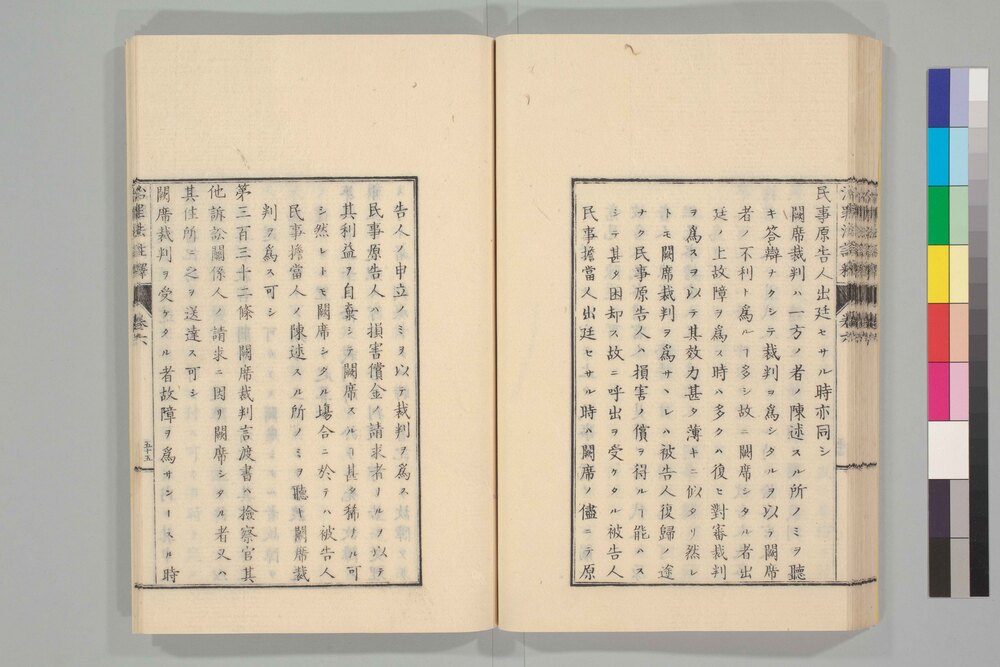 民事原告人出廷セサル時亦同シ
闕席裁判ハ一方ノ者ノ陳述スル所ノミヲ聽
キ答辯ナクシテ裁判ヲ爲シタルヲ以テ闕席
者ノ不利ト爲ルヿ多シ故ニ闕席シタル者出
廷ノ上故障ヲ爲ス時ハ多クハ復ヒ對審裁判
ヲ爲スヲ以テ其效力甚タ薄キニ似タリ然レ
トモ闕席裁判ヲ爲サヽレハ被告人復歸ノ途
ナク民事原告人ハ損害ノ償ヲ得ルヿ能ハス
シテ甚タ困却ス故ニ呼出ヲ受ケタル被告人
民事擔當人出廷セサル時ハ闕席ノ儘ニテ原
告人ノ申立ノミヲ以テ裁判ヲ爲ス
民事原告人ハ損害償金ノ請求者ナルヲ以テ
其利益ヲ自棄シテ闕席スルヿ甚タ稀ナル可
シ然レトモ闕席シタル塲合ニ於テハ被告人
民事擔當人ノ陳述スル所ノミヲ聽キ闕席裁
判ヲ爲ス可シ
第三百三十二條 闕席裁判言渡書ハ撿察官其
他訴訟關係人ノ請求ニ因リ闕席シタル者又ハ
其住所ニ之ヲ送達ス可シ
闕席裁判ヲ受ケタル者故障ヲ爲サントスル時
治罪法註釋 卷六 五十五